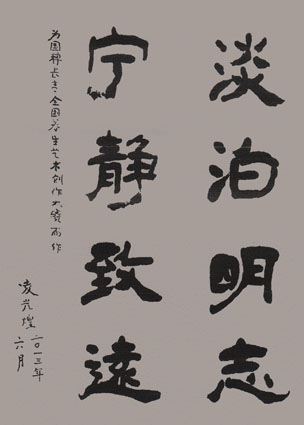 淡泊明志
宁静致遠
为国粹长全国养生艺术创作大赛而作
凌光煌
二〇一三年
六月